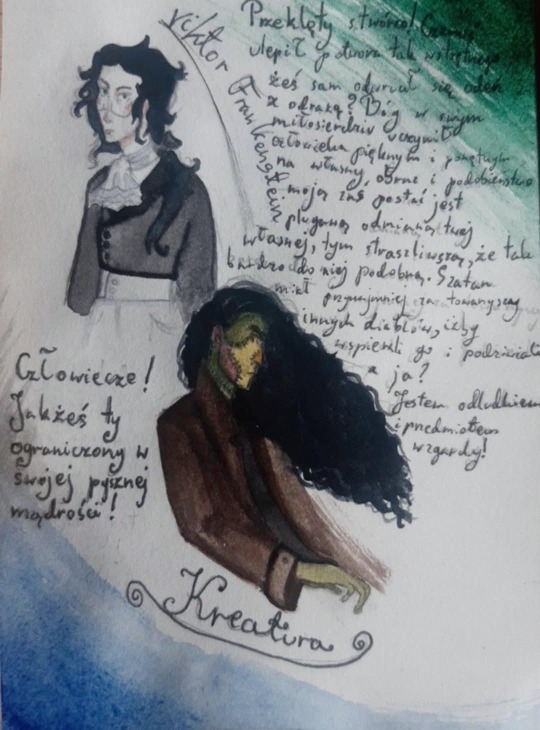 Viktor Frankenstein
Przeklęty stwórco! Czemuś
ulepił potwora tak wstrętnego
żeś sam odwrócił się odeń
z odrazą? Bóg w swym
miłosierdziu uczynił
człowieka pięknym i ponętnym
na własny obraz i podobieństwo
moja zaś postać jest
plugawą odmianą twej
własnej, tym straszliwszą, że tak
bardzo do niej podobną. Szatan
miał przynajmniej za towarzyszy
innych diabłów, iżby
wspierali go i podziwiali
a ja?
Jestem odludkiem
i przedmiotem
wzgardy!
Człowiecze!
Jakżeś ty
ograniczony w
swojej pysznej
mądrości!
Kreatura